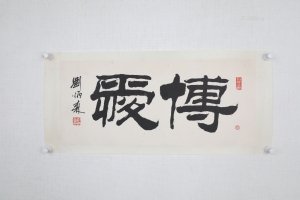 博爱
劉炳森